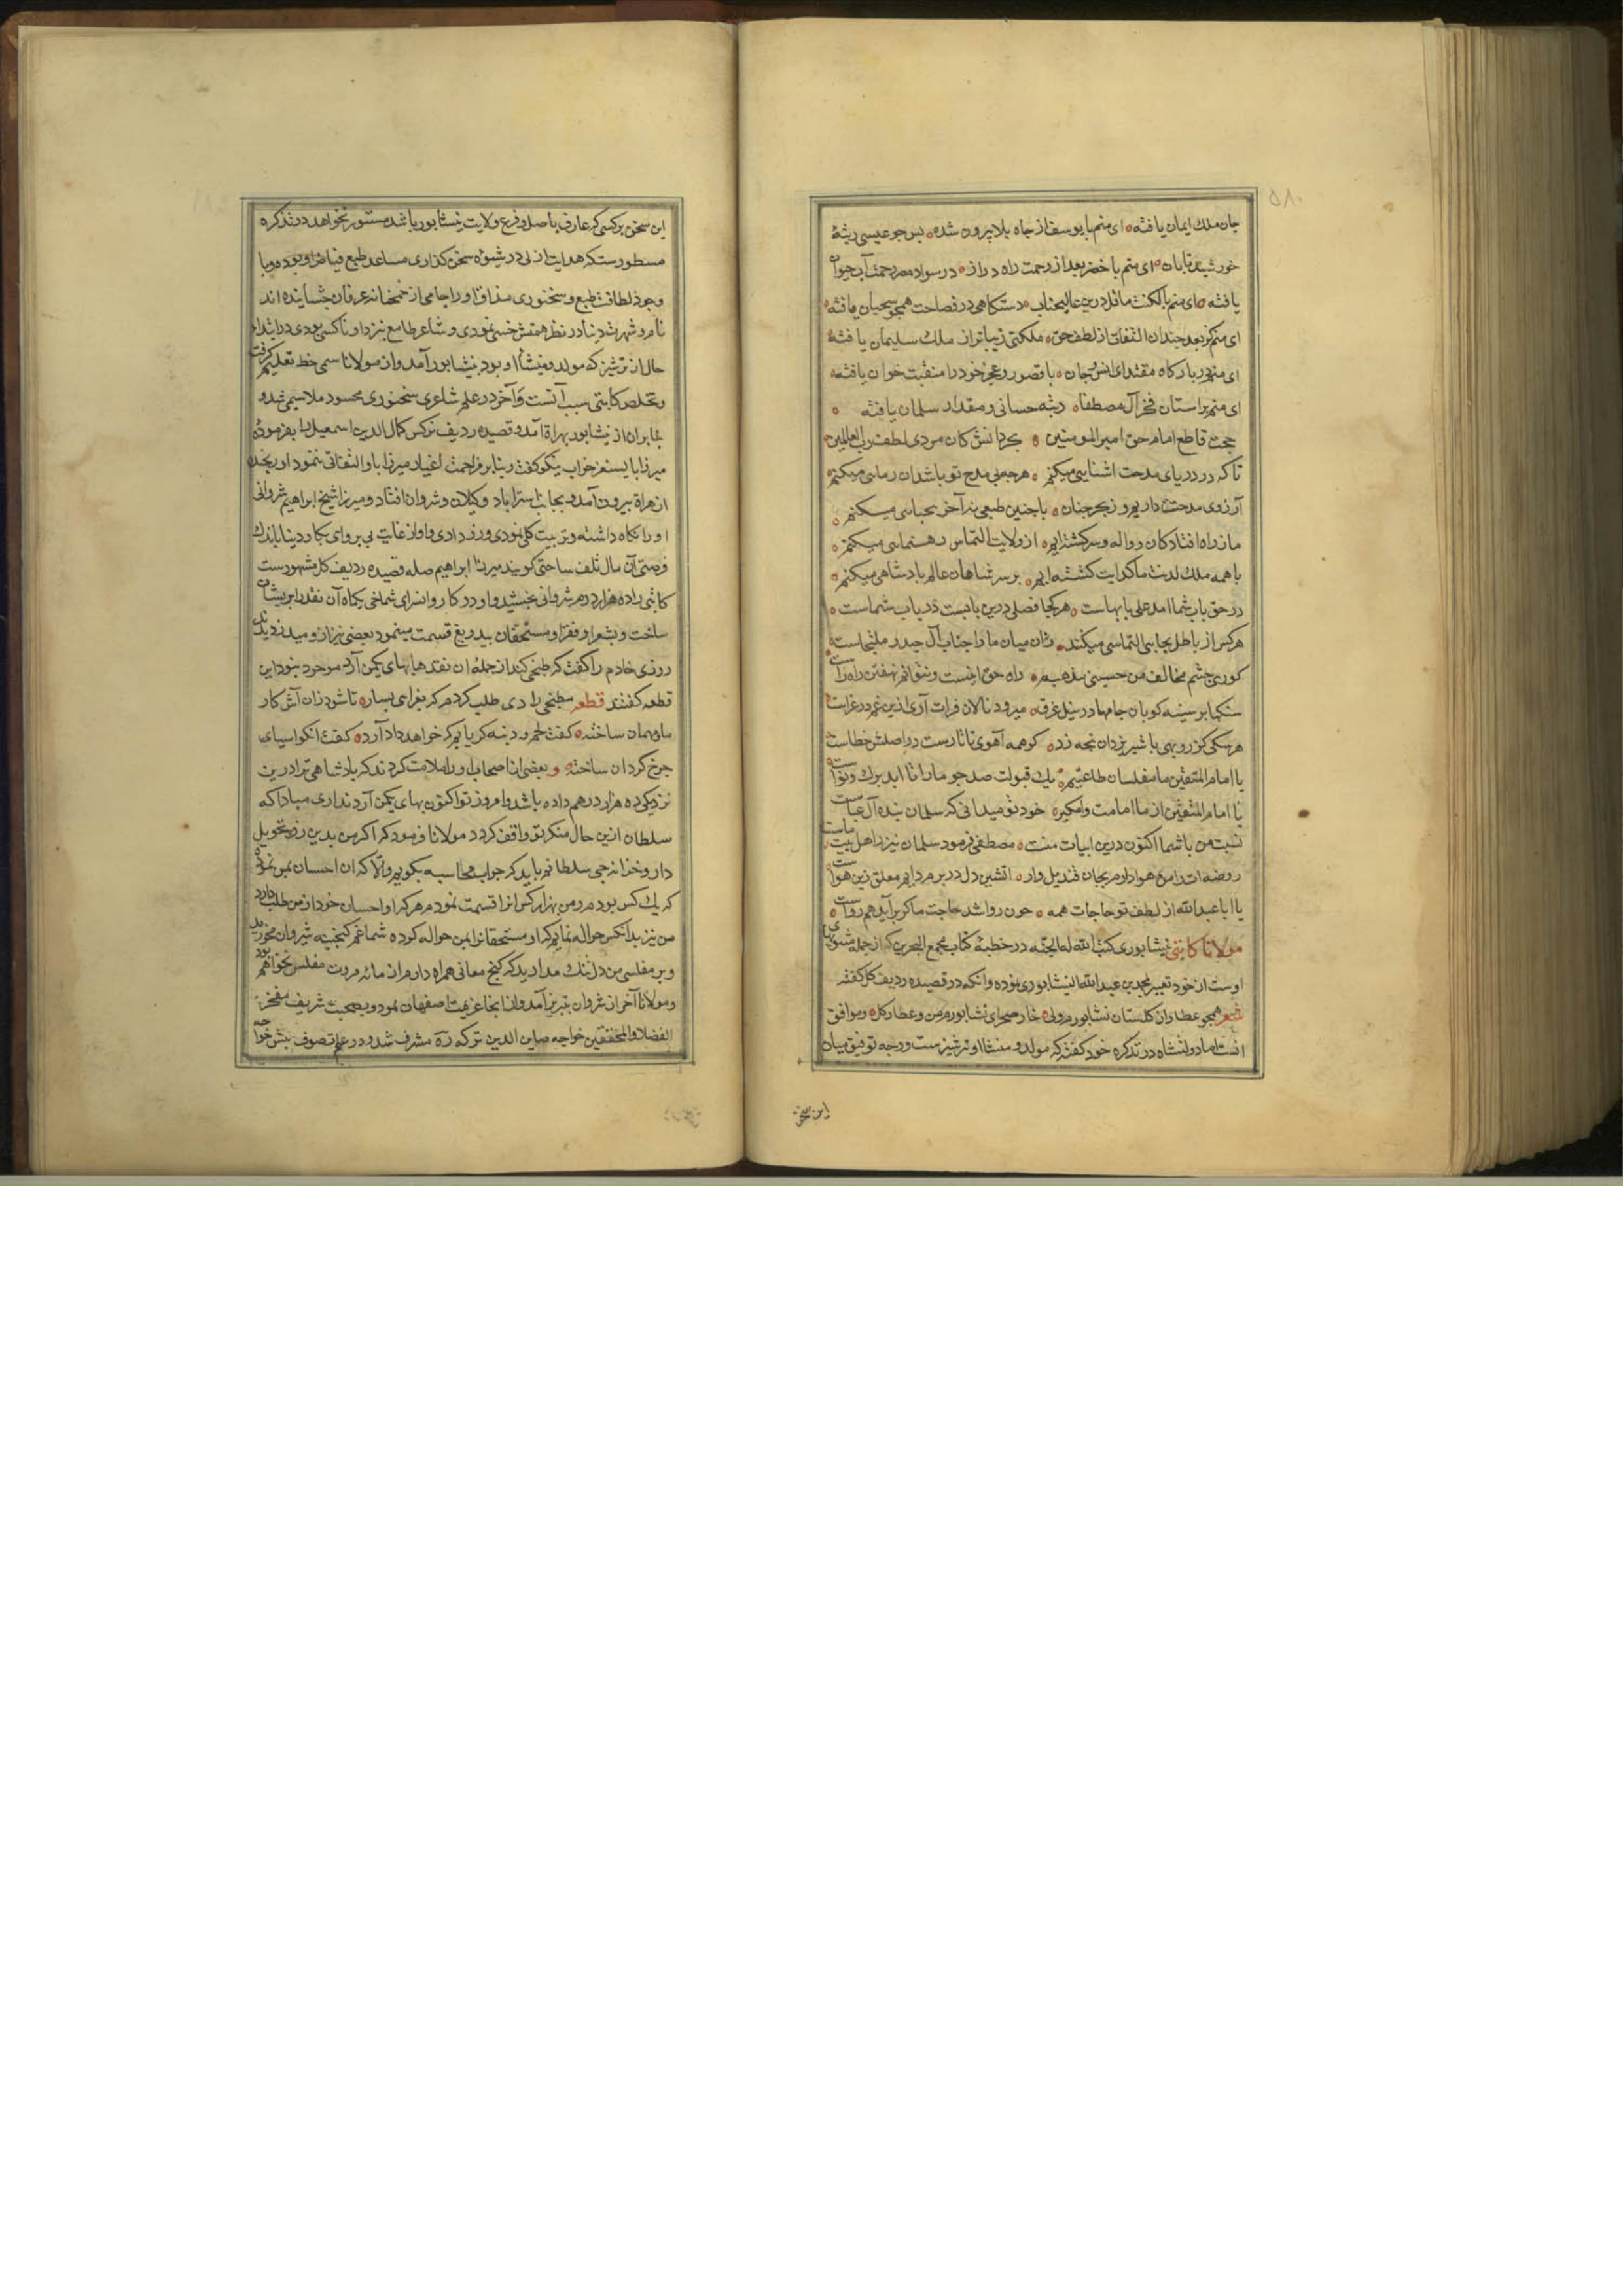 جان ملك ايمان يافته ای منم با يوسف از چاه بلا بيرون شده پس چو عيسی رتبهٔ
خورشيد تابان ای منم با خضر بعد از زحمت راه دراز در سواد مصر رحمت آب حيوان
يافته ای منم با لكنت ماثل درين عاليجناب دستكاهی در فصاحت همچو سحبان يافته
ای منم كز بعد چندان التفات از لطف حق ملكتی زيباتر از ملك سليمان يافته
ای منم در باركاه مقتدای انس و جان با قصور و عجز خود را منقبت خوان يافته
ای منم بر استان فخر آل مصطفا رتبه حسانی و مقدار سلمان يافته
حجت قاطع امام حق امير المومنين بحر دانش كان مردی لطف رب العالمين
تا كه در دريای مدحت اشنايی ميكنم هرچه بی مدح تو باشد ان رمايی ميكنم
آرزوی مدحت داريم و ز بحر جنان با چنين طبعی نه آخر بجبايی ميكنم
ما ز راه افتادكان و واله و سركشته ايم از ولايت التماس رهنمايی ميكنم
با همه ملك لدنت ما كدايت كشته ايم بر سر شاهان عالم پادشاهی ميكنم
در حق باب شما امد علی بابها ست هر كجا فصلی درين بابست در باب شماست
هركس از باطل بجايی التماسی ميكند زان ميان ما را جناب آل حيدر ملتجاست
كوری چشم مخالف من حسينی مذهبم راه حق اينست و نتوانم نهفتن راه راست
سنكها بر سينه كوبان جامها در نيل غرقه ميرود نالان فرات آری ازين غم در عزاست
هر سكی كز روبهی با شير يزدان پنجه زد كر همه آهوی تاتارست در اصلش خطاست
يا امام المتقين ما مفلسان طاعتيم يك قبولت صد چو ما را تا ابد برك و نواست
يا امام المتقين از ما امامت وامكير خود تو ميدانی كه سلمان بنده آل عباست
نسبت من با شما اكنون درين ابيات منست مصطفی فرمود سلمان نيز ز اهل بيت ماست
روضه ات را من هوادارم بجان قنديل وار اتشين دل در برم دايم معلق زين هواست
يا ابا عبد الله از لطف تو حاجات همه چون روا شد حاجت ما كر برآيد هم رواست
مولانا كاتبی نيشابوری كتب الله له الجنة در خطبهٔ كتاب مجمع البحرين كه از جمله مثنوی
اوست از خود تعبير بمحمد بن عبد الله النيشابوری نموده و انكه در قصيده رديف كل كفته
شعر همچو عطار از كلستان نشابورم ولی خار صحرای نشابورم من و عطار كل و موافق
انست اما دولتشاه در تذكره خود كفته كه مولد و منشا او ترشيز ست و وجه توفيق ميان
اين سخن
اين سخن بر كسی كه عارف باصل و فرع ولايت نيشابور باشد مستور نخواهد در تذكره
مسطورست كه هدايت ازلی در شيوه سخن كذاری مساعد طبع فياض او بوده و با
وجود لطافت طبع و سخنوری مذاق او را جامی از خمخانه عرفان چشانيده اند
نام و شهرت دنيا در نظر همتش خسی نمودی و شاعر طامع نيزد او ناكسی بودی در ابتداء
حال از ترشيز كه مولد و منشأ او بود بنيشابور آمد و از مولانا سيمی خط تعليم كرفت
و تخلص كاتبی سبب آنست و آخر در علم شاعری و سخنوری محسود ملا سيمی شد و
بنابران از نيشابور بهراة آمد و قصيده رديف نركس كمال الدين اسمعيل را بفرمودهٔ
ميرزا بايسنغر جواب نيكو كفت و بنا بر مزاحمت اغيار ميرزا باو التفاتی ننمود او برنجيد
از هراة بيرون آمد و بجانب استراباد و كيلان و شروان افتاد و ميرزا شيخ ابراهيم شروانی
او را نكاه داشته و تربيت كلی نمودی و زر دادی و او از غايت بی پروای بكار دنيا باندك
فرصتی آن مال تلف ساختی كويند ميرزا ابراهيم صله قصيده رديف كل مشهورست
كاتبی را ده هزار درم شروانی بخشيد و او در كاروانسرای شماخی بكماه آن نقد را پريشان
ساخت و بشعرا و فقرا و مستحقان بيدريغ قسمت مينمود بعضی نيز از و ميدزديدند
روزی خادم را كفت كه طبخی كند از جمله ان نقدها بهای يكمن آرد موجود نبود اين
قطعه كفتند قطعه مطبخی را دی طلب كردم كه بغرای بسازد تا شود زان آش كار
ما و مهمان ساخته كفت لحم و دنبه كر يابم كه خواهد داد آرد كفت انكو اسيای
چرخ كردان ساخته و بعضی از اصحاب او را ملامت كردند كه پادشاهی ترا درين
نزديكی ده هزار درهم داده باشد و امروز تو اكنون بهای يكمن آرد نداری مبادا كه
سلطان ازين حال منكر تو واقف كردد مولانا فرمود كه اكر من بدين زر تحويل
دار و خزانه چی سلطانم بايد كه جواب محاسبه بكويم و الا كه ان احسان بمن نموده
كه يك كس بودم و من بهزار كس انرا قسمت نمودم هر كه او احسان خود از من طلب دارد
من نيز بدانكس حواله نمايم كه او مستحقانرا بمن حواله كرده شما غم كنجينه شيروان مخوريد
و بر مفلسی من دل تنك مداريد كه كنج معانی همراه دارم از مائهٔ مروت مفلس نخواهم بود
و مولانا آخر از شروان بتبريز آمد و از انجا عزيمت اصفهان نمود و بصحبت شريف مفخر
الفضلاء و المحققين خواجه صاين الدين تركه ره مشرف شد و در علم تصوف پيش خواجه